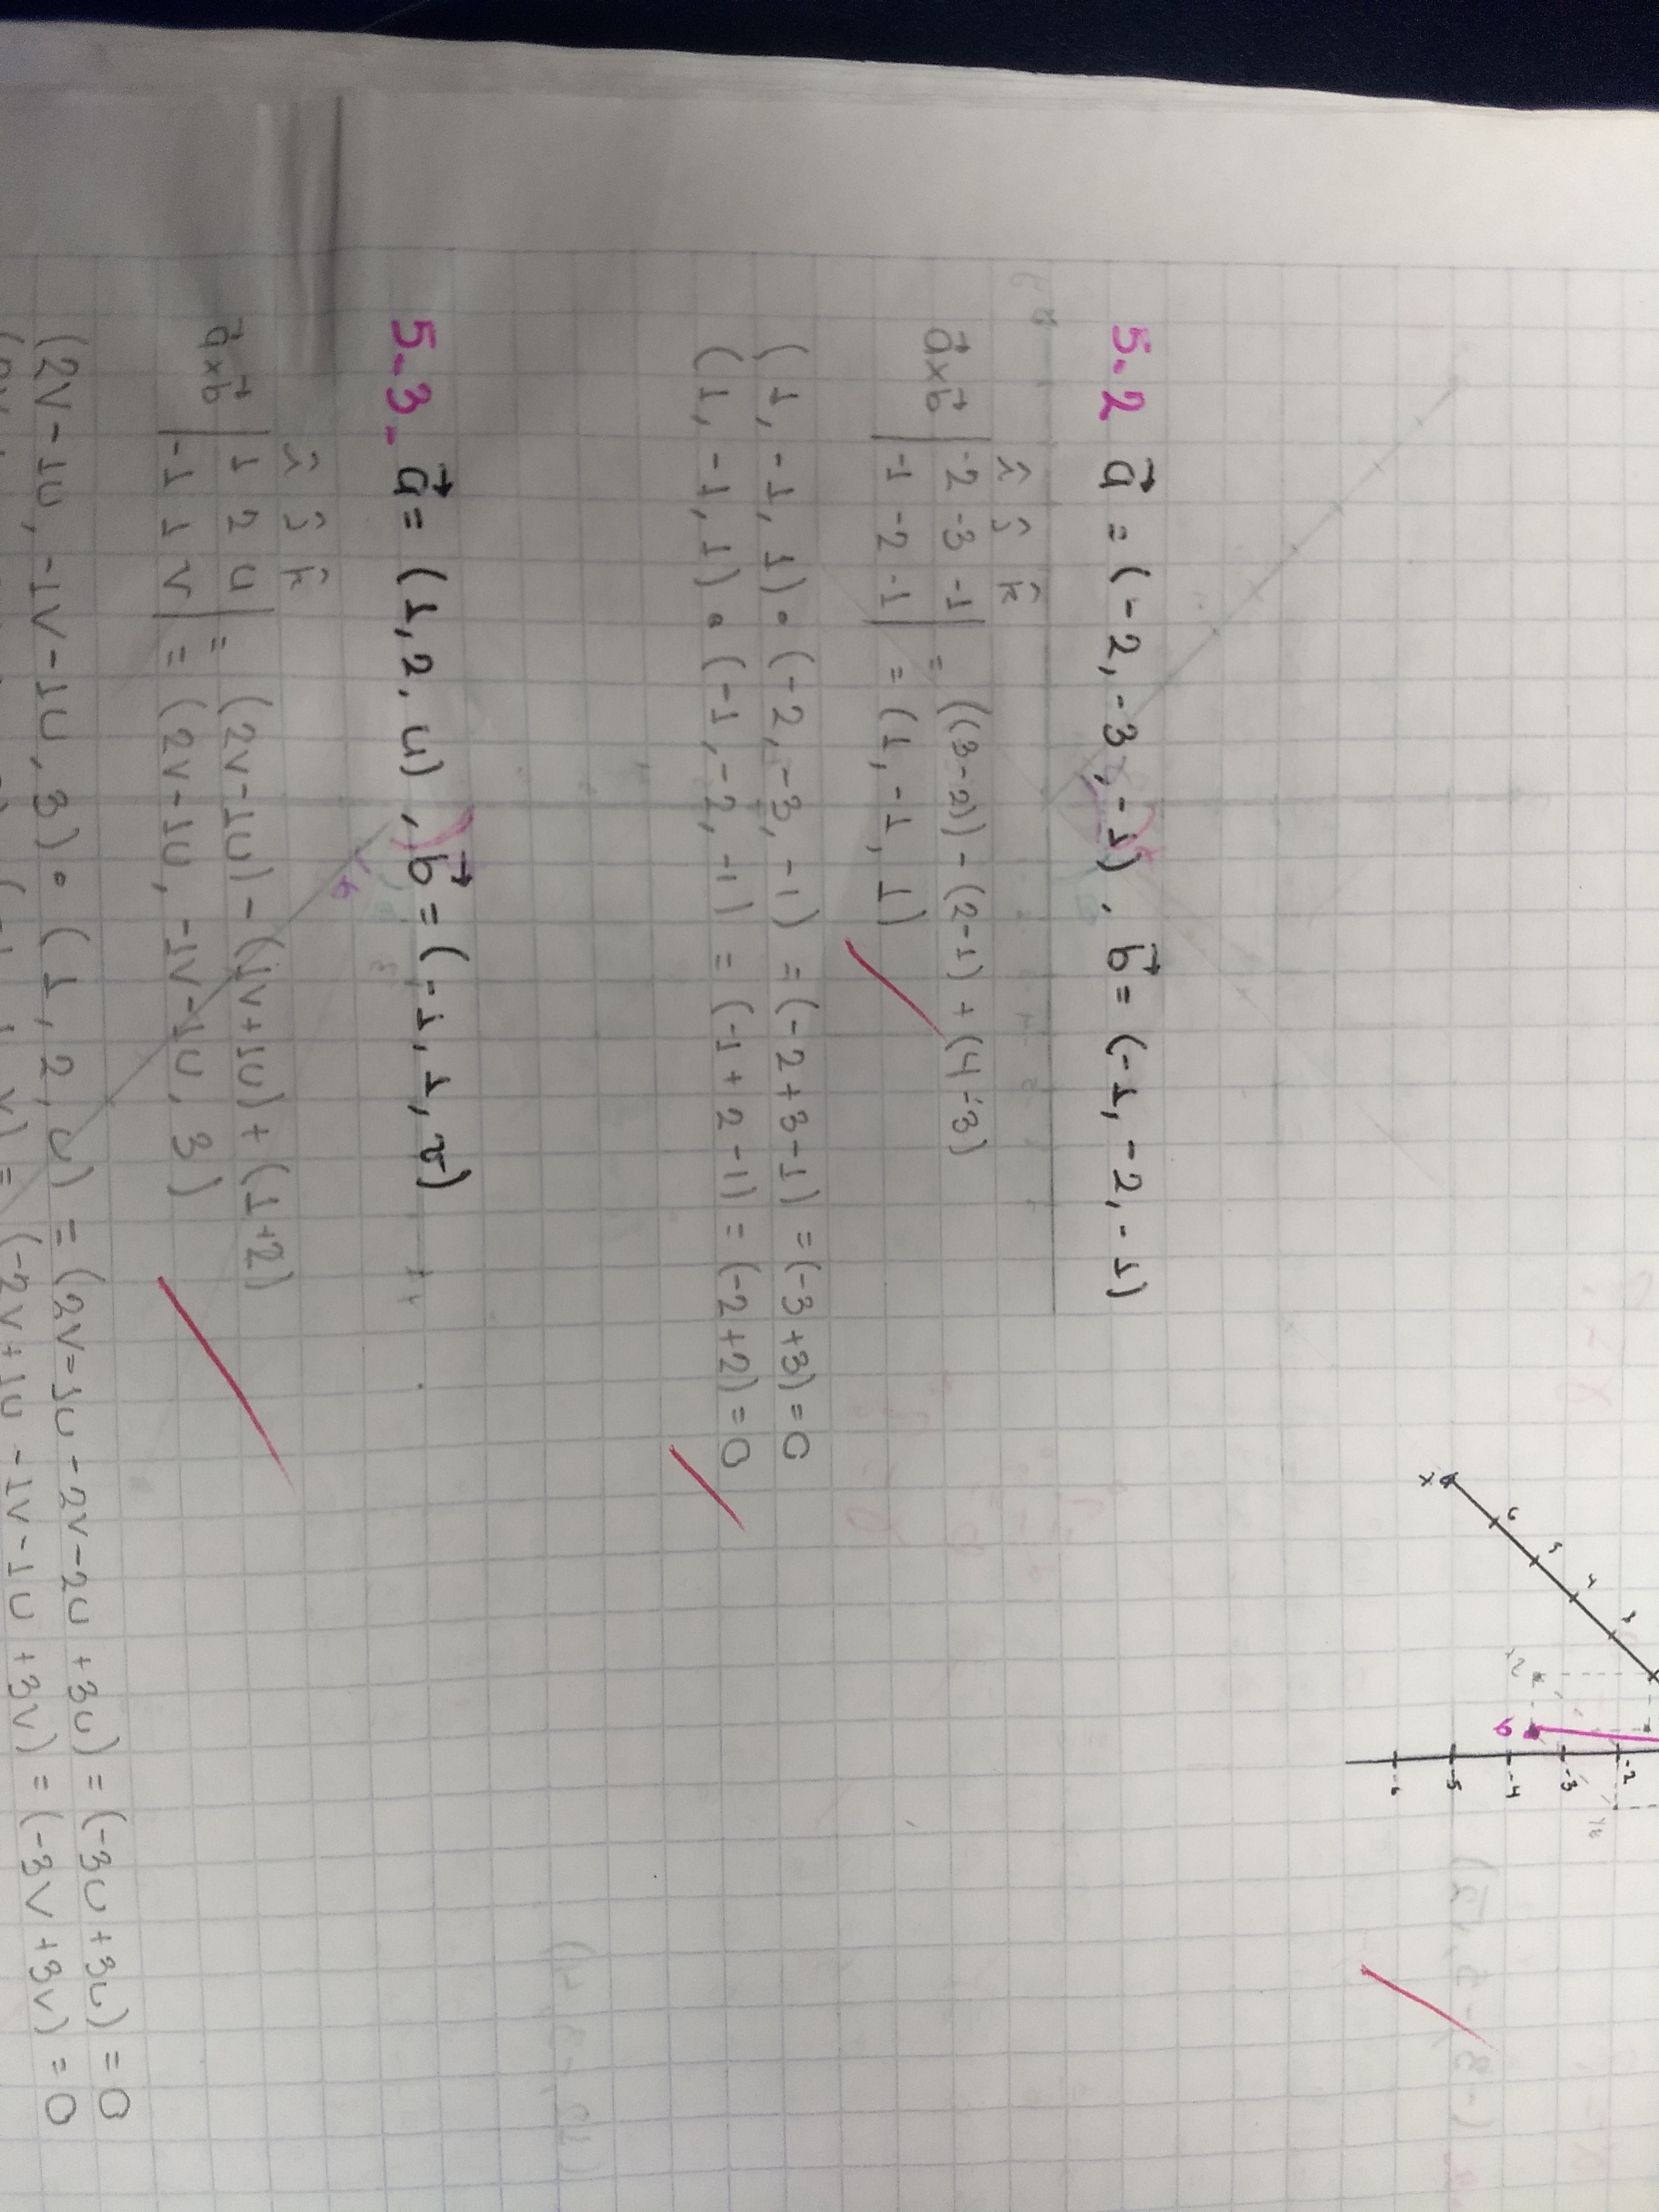 3
4
5
6
x
-2
-3
-4
-5
-6
b
5.2 a⃗ = (-2, -3, -1), b⃗ = (-1, -2, -1)
î ĵ k̂
a⃗xb⃗ |-2 -3 -1| = ((3-2)) - (2-1) + (4-3)
|-1 -2 -1| = (1, -1, 1)
(1, -1, 1) • (-2, -3, -1) = (-2+3-1) = (-3+3) = 0
(1, -1, 1) • (-1, -2, -1) = (-1+2-1) = (-2+2) = 0
5-3- a⃗ = (1, 2, u), b⃗ = (-1, 1, v)
î ĵ k̂
a⃗xb⃗ |1 2 u| = (2v-1u) - (1v+1u) + (1+2)
|-1 1 v| = (2v-1u, -1v-1u, 3)
(2v-1u, -1v-1u, 3) • (1, 2, u) = (2v-1u-2v-2u+3u) = (-3u+3u) = 0
= (-2v+1u-1v-1u+3v) = (-3v+3v) = 0